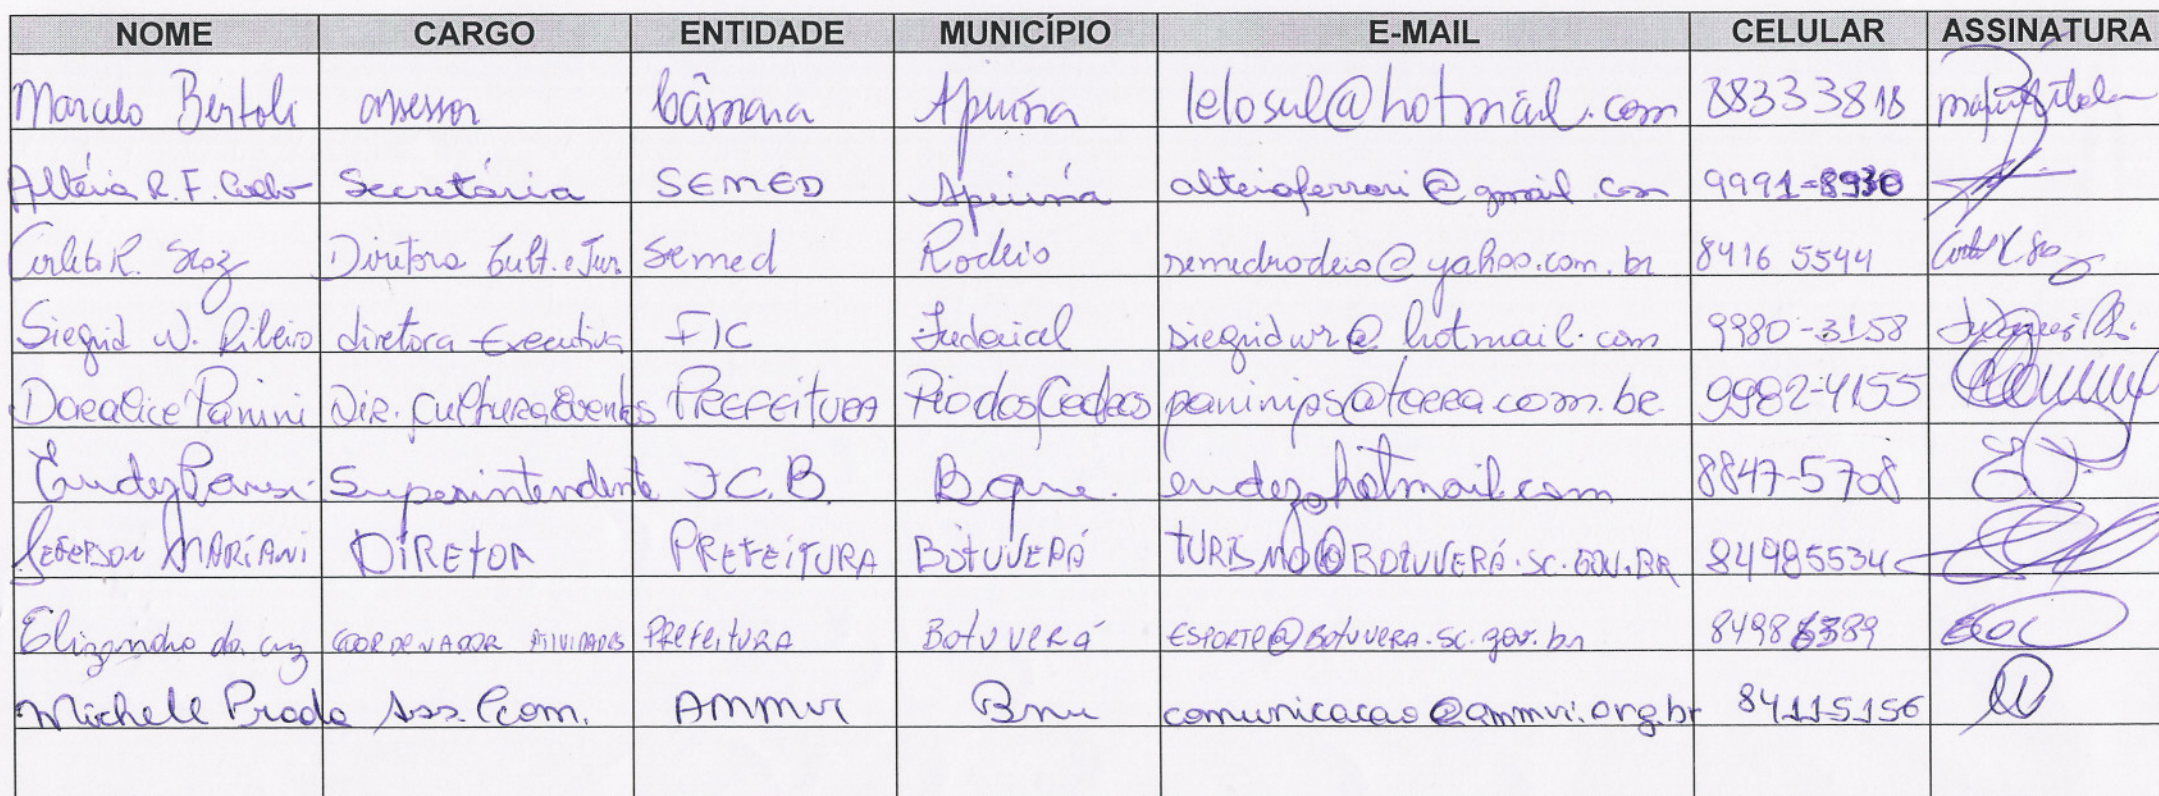 NOME CARGO ENTIDADE MUNICÍPIO E-MAIL CELULAR ASSINATURA
Marcelo Bertoli assessor Câmara Apiúna lelosul@hotmail.com 88333818
Altéia R.F. Secretária SEMED Apiúna alteiaferrari@gmail.com 9991-8930
Carlito R. Stoz Diretora Cult. e Tur Semed Rodeio semedrodeio@yahoo.com.br 8416 5544
Siegrid W. Ribeiro diretora Executiva FIC Indaial siegridwr@hotmail.com 9980-3158
Doralice Panini Dir. Cultura e Eventos Prefeitura Rio dos Cedros paninips@terra.com.br 9982-4155
Eudez Pavesi Superintendente I.C.B. Bque. eudez@hotmail.com 8847-5708
Jeferson MARIANI DIRETOR PREFEITURA BOTUVERÁ TURISMO@BOTUVERÁ.SC.GOV.BR 84985534
Elizandro da cruz COORDENADOR ATIVIDADES PREFEITURA BOTUVERÁ ESPORTE@BOTUVERA.SC.gov.br
Michele Prada Ass. Com. AMMVI Bnu comunicacao@ammvi.org.br 84115156